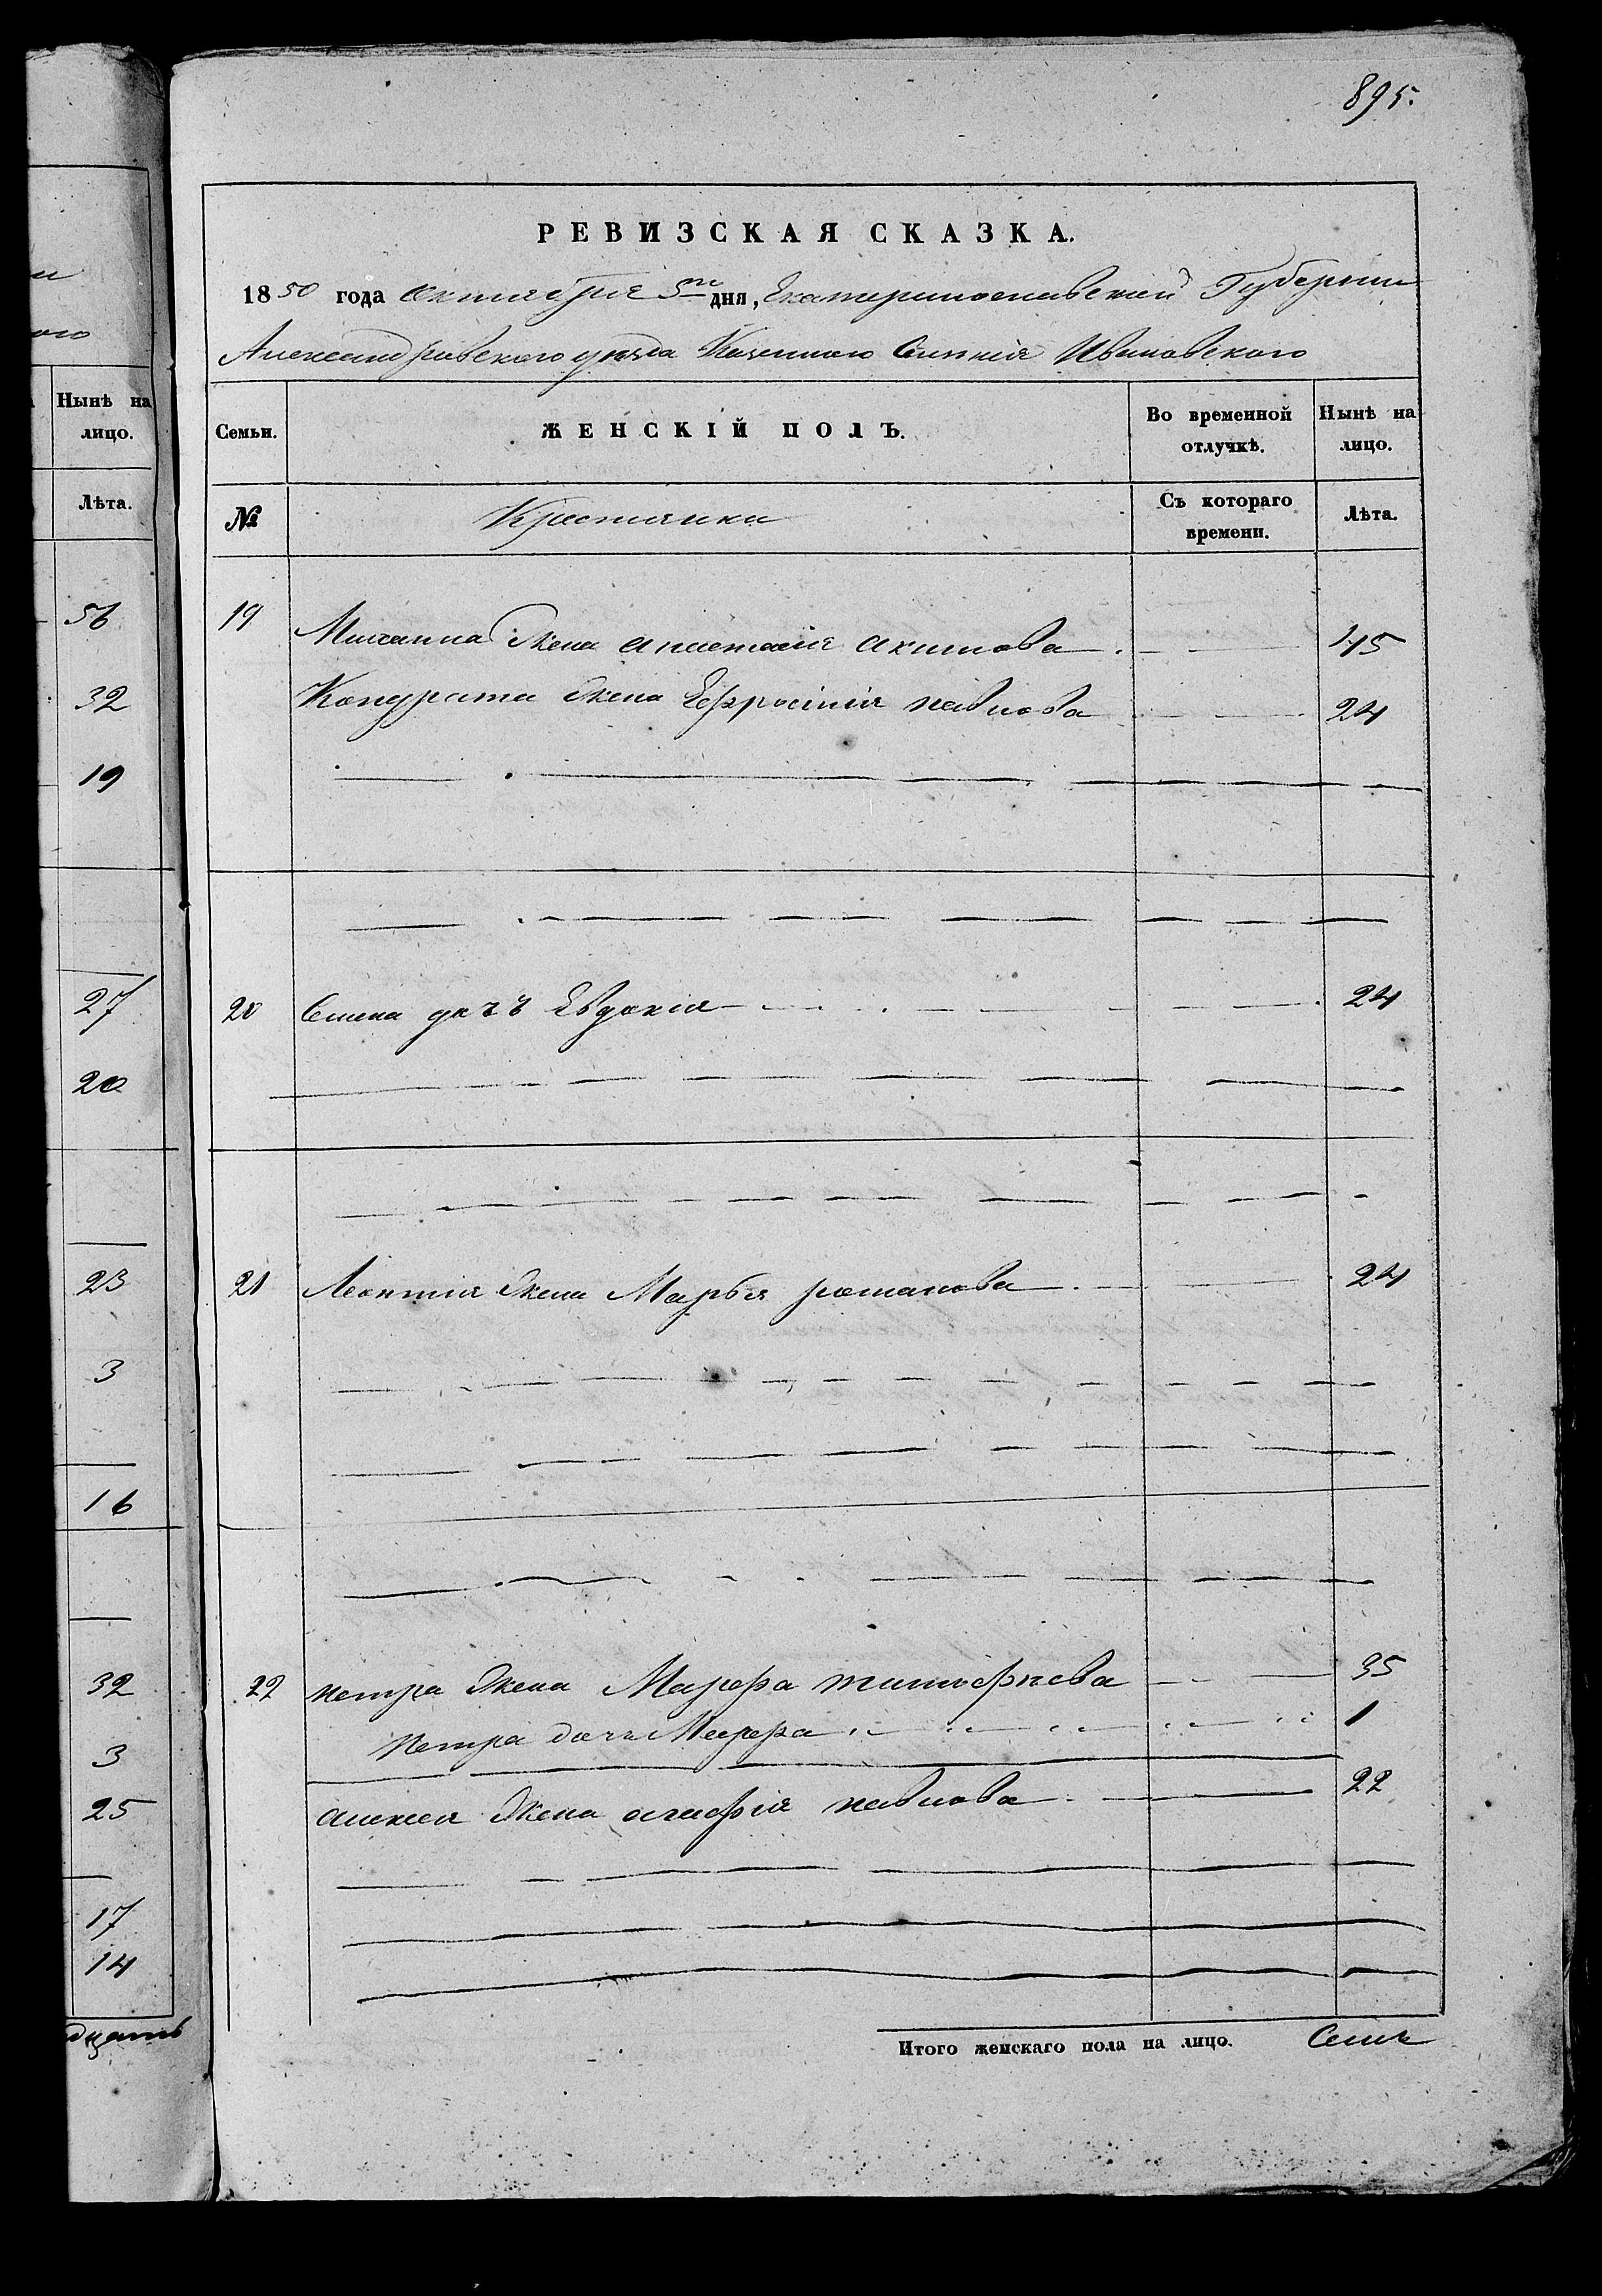 895.
РЕВИЗСКАЯ СКАЗКА.
1850 года октября 5го дня, Екатеринославской Губернии
Александровского уезда Казенного Селения Ивановского
Семьи.
ЖЕНСКІЙ ПОЛЪ.
Во временной отлучкѣ.
Нынѣ на лицо.
№
Крестьянки
Съ котораго времени.
Лѣта.
19 Михаила жена анастасія акимова 45
Кондрата жена Ефросінія павлова 24
20 дочь Евдокія 24
21 Леонтія жена Марья романова 24
22 петра жена Марфа тимофѣева 35
Петра дочь Марфа 1
алексея жена агафія павлова 22
Итого женскаго пола на лицо. Семь
Нынѣ на лицо.
Лѣта.
56
32
19
27
20
23
3
16
32
3
25
17
14
дцать